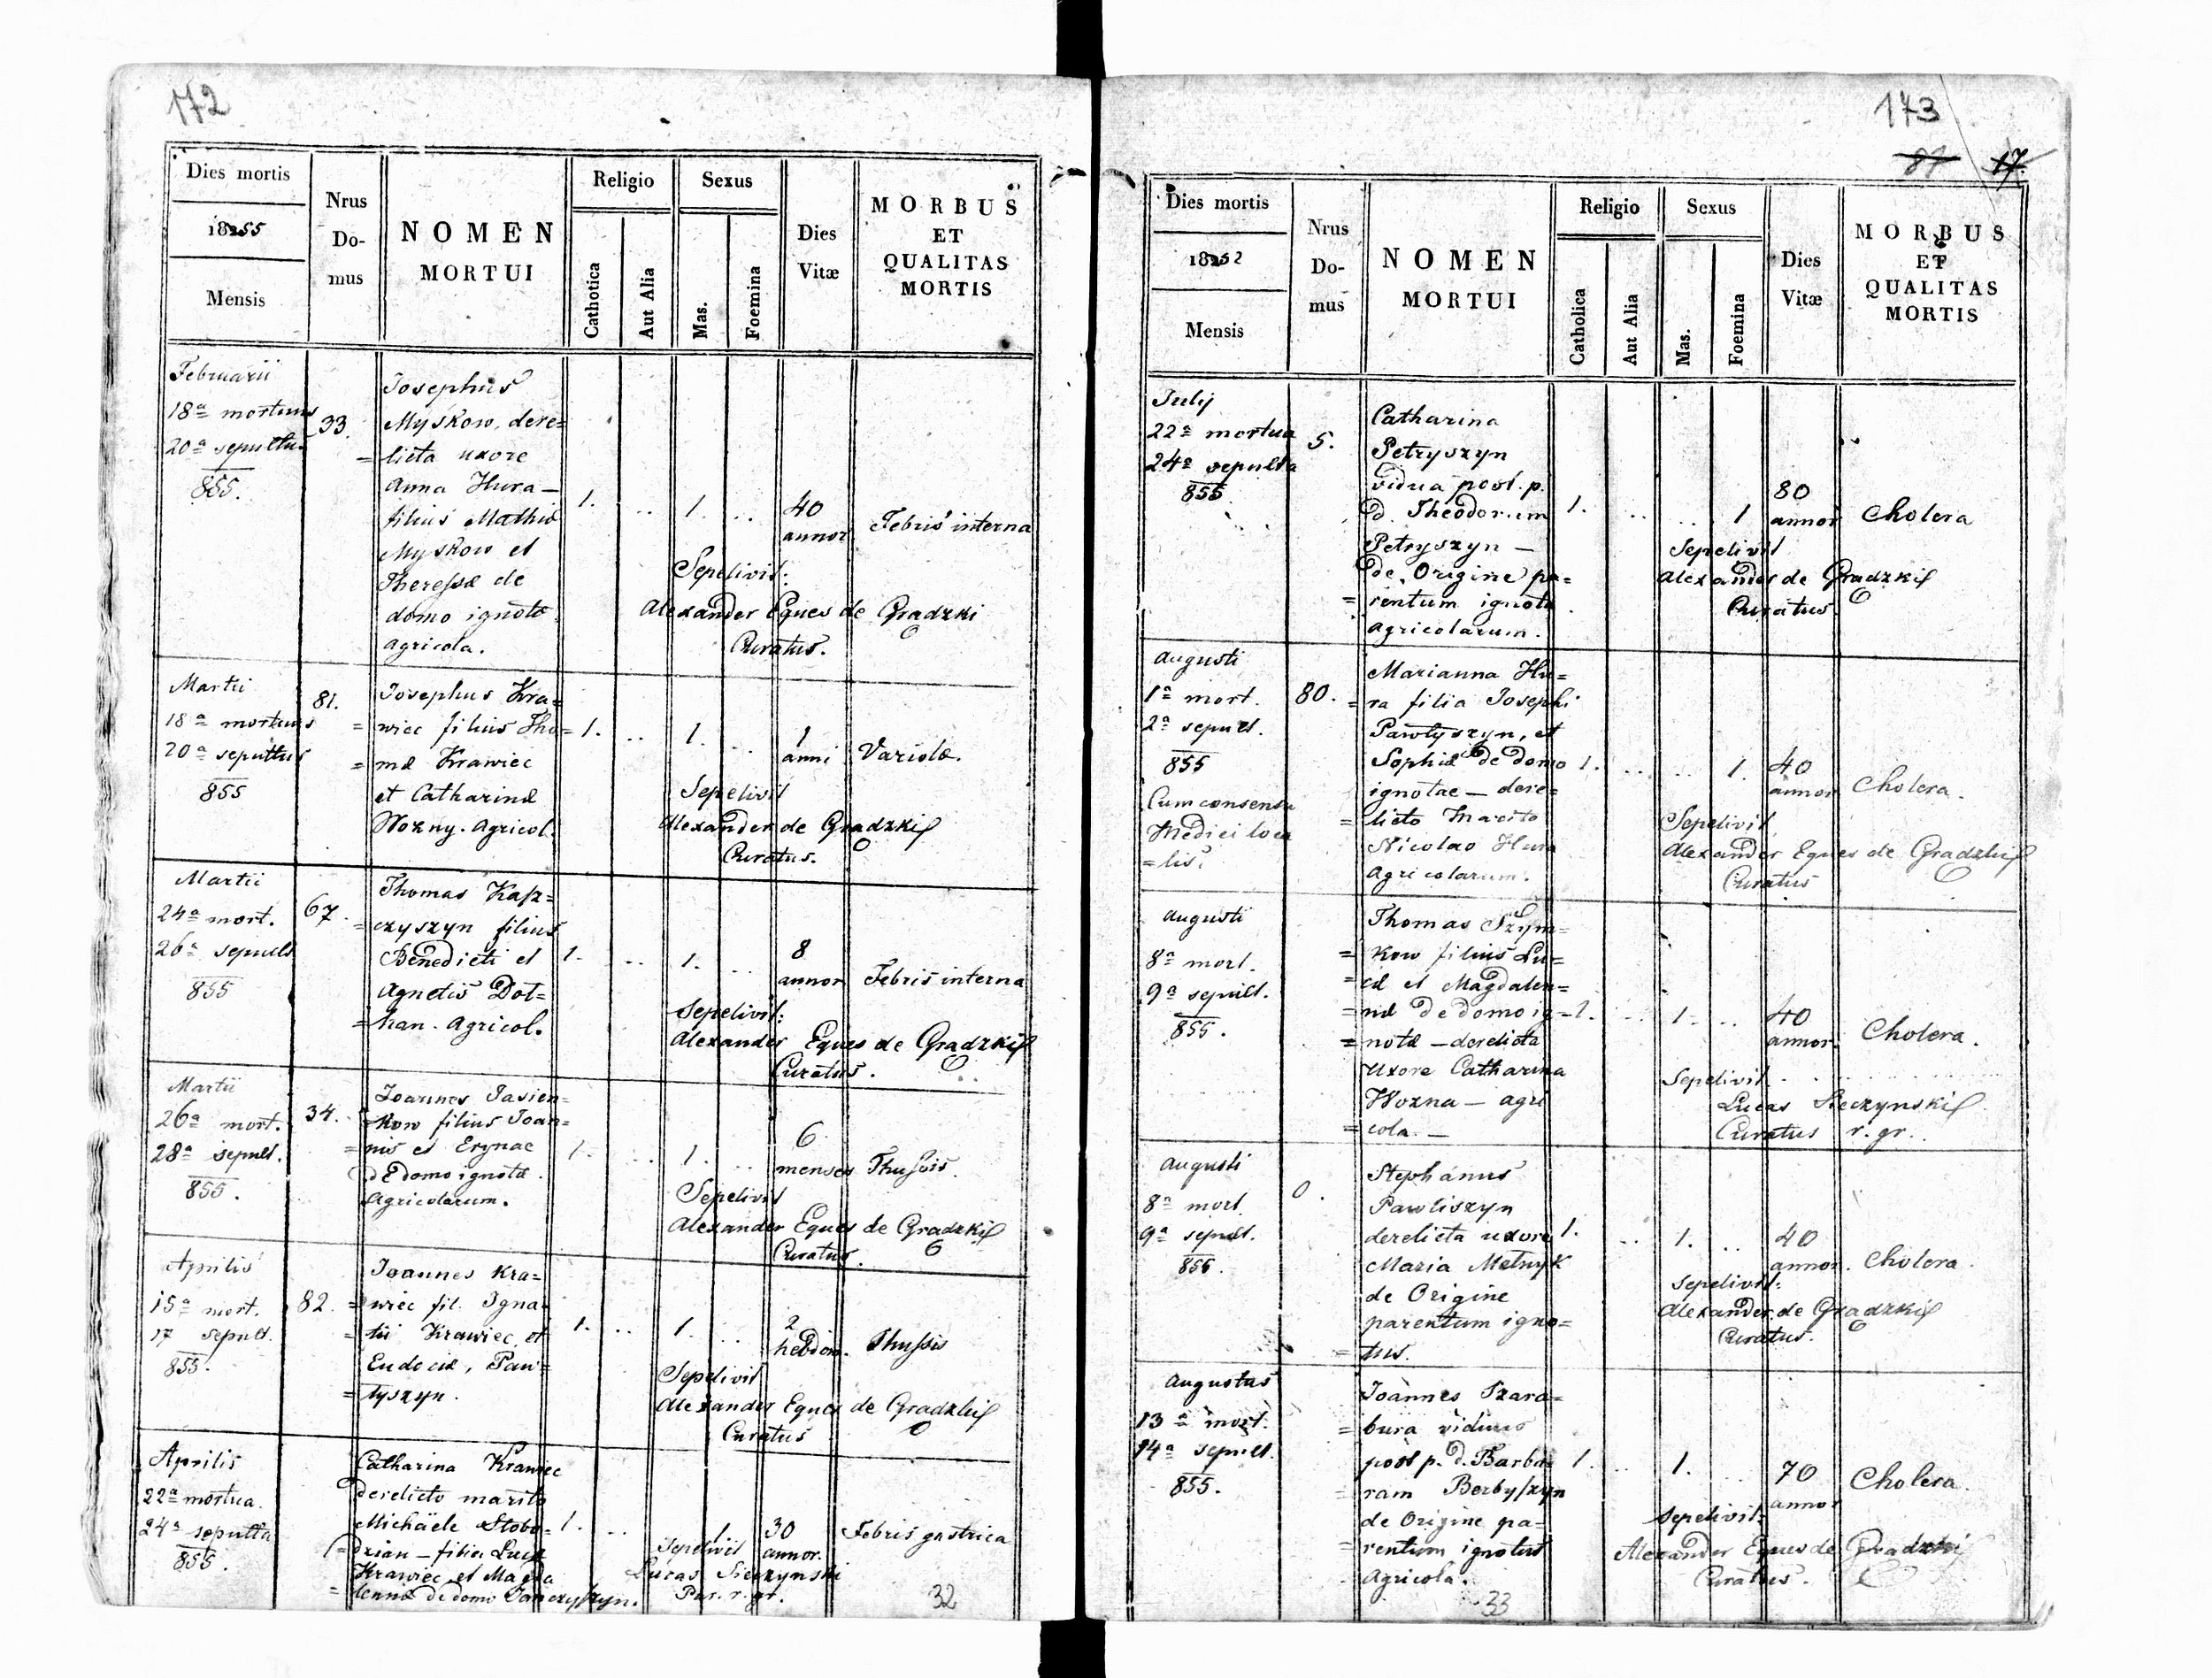 172
Dies mortis
1855
Mensis
Nrus
Do-
mus
NOMEN
MORTUI
Religio
Catholica
Aut Alia
Sexus
Mas.
Foemina
Dies
Vitæ
MORBUS
ET
QUALITAS
MORTIS
Februarii
18ª mortuus
20ª sepultus
855.
33.
Josephus
Myskow, dere=
=licta uxore
Anna Hura —
filius Mathiæ
Myskow et
Theressæ de
domo ignotæ
agricola.
1. .. 1. ..
40
annor
Febris interna
Sepelivit:
Alexander Eques de Gradzki
Curatus.
Martii
18ª mortuus
20ª sepultus
855
81.
Josephus Kra=
=wiec filius Tho=
=mæ Krawiec
et Catharinæ
Wozny. Agricol.
1. .. 1. ..
1
anni
Variolæ.
Sepelivit
Alexander de Gradzki
Curatus.
Martii
24ª mort.
26ª sepult
855
67.
Thomas Kap=
=czyszyn filius
Benedicti et
Agnetis Dot=
=han. Agricol.
1. .. 1. ..
8
annor
Febris interna
Sepelivit:
Alexander Eques de Gradzki
Curatus.
Martii
26ª mort.
28ª sepult.
855.
34.
Joannes Jasien=
=kow filius Joan=
=nis et Erynae
de domo ignotæ.
Agricolarum.
1. .. 1. ..
6
menses
Thussis.
Sepelivit
Alexander Eques de Gradzki
Curatus.
Aprilis
15ª mort.
17 sepult.
855.
82.
Joannes Kra=
=wiec fil. Igna=
=tii Krawiec, et
Eudociæ, Paw=
=lyszyn.
1. .. 1. ..
2
hebdom.
Thussis
Sepelivit
Alexander Eques de Gradzki
Curatus
Aprilis
22ª mortua
24ª sepulta
855.
Catharina Krawiec
derelicto marito
Michaele Slobo=
=dzian — filia Lucæ
Krawiec et Magda
=lennæ de domo Janczyszyn.
1. .. 1.
30
annor.
Febris gastrica
Sepelivit
Lucas Sieczynski
Par. r. gr.
32
173
87 17.
Dies mortis
1852
Mensis
Nrus
Do-
mus
NOMEN
MORTUI
Religio
Catholica
Aut Alia
Sexus
Mas.
Foemina
Dies
Vitæ
MORBUS
ET
QUALITAS
MORTIS
July
22ª mortua
24ª sepulta
855
5.
Catharina
Petryszyn
vidua post. p.
d. Theodorum
Petryszyn —
de Origine pa=
=rentum ignota
agricolarum.
1. .. .. 1
80
annor
Cholera
Sepelivit
Alexander de Gradzki
Curatus.
Augusti
1ª mort.
2ª sepult.
855
Cum consensu
Medici loca
=lis.
80.
Marianna Hu=
=ra filia Josephi
Pawlyszyn, et
Sophiæ de domo
ignotae — dere=
=licto Marito
Nicolao Hura
Agricolarum.
1. .. .. 1.
40
annor
Cholera.
Sepelivit
Alexander Eques de Gradzki
Curatus
Augusti
8ª mort.
9ª sepult.
855.
Thomas Szym=
=kow filius Lu=
=cæ et Magdalen=
=næ de domo ig=
=notæ — derelicta
Uxore Catharina
Wozna — agri
=cola. —
1. .. 1. ..
40
annor.
Cholera.
Sepelivit
Lucas Sieczynski
Curatus r. gr.
Augusti
8ª mort.
9ª sepult.
855.
0.
Stephanus
Pawliszyn
derelicta uxore
Maria Melnyk
de Origine
parentum igno=
=tus.
1. .. 1. ..
40
annor.
Cholera.
Sepelivit:
Alexander de Gradzki
Curatus.
Augustus
13ª mort.
14ª sepult.
855.
Joannes Szara=
=bura viduus
post p. d. Barba=
ram Berbyszyn
de Origine pa=
=rentum ignotus
Agricola.
1. .. 1. ..
70
annor
Cholera.
Sepelivit:
Alexander Eques de Gradzki
Curatus.
33